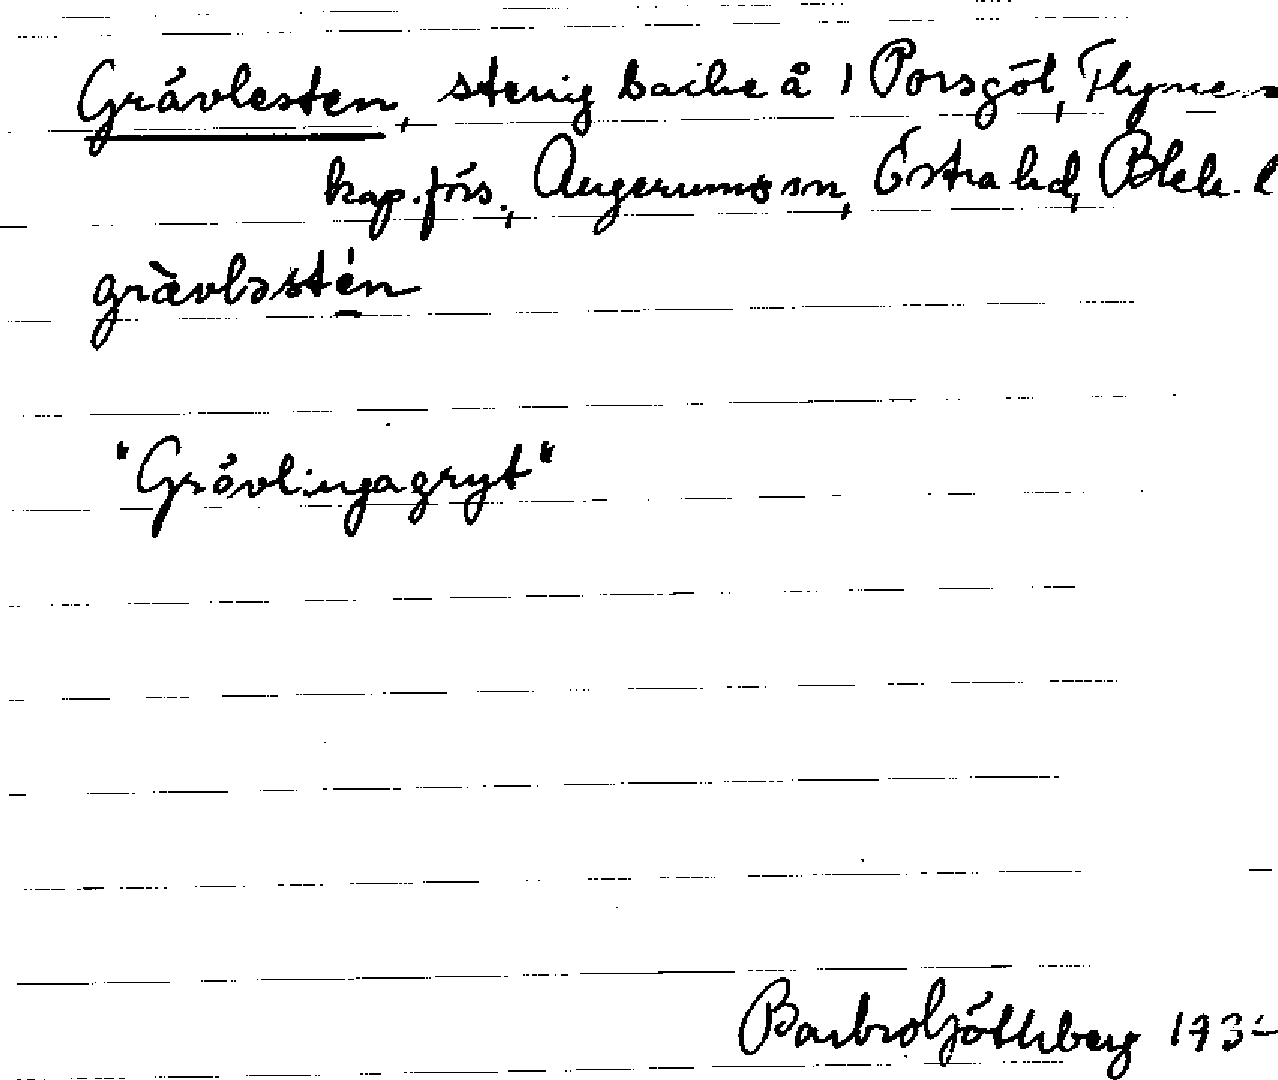 Grävlesten, stenig backe å 1 Porsgöl, Flymens
kap.förs., Augerums sn, Östra hd, Blek. l
grævləstén
"Grävlingagryt"
Barbro 193